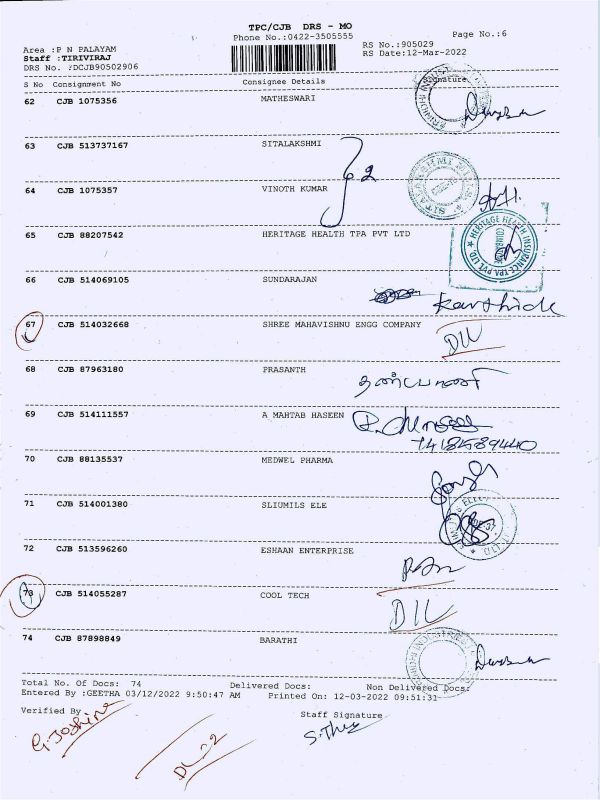 TPC/CJB DRS - MO
Phone No.:0422-3505555
Page No.:6
Area :P N PALAYAM
RS No.:905029
Staff :TIRIVIRAJ
RS Date:12-Mar-2022
DRS No. :DCJB90502906
S No Consignment No Consignee Details Signature
62 CJB 1075356 MATHESWARI
63 CJB 513737167 SITALAKSHMI
64 CJB 1075357 VINOTH KUMAR
65 CJB 88207542 HERITAGE HEALTH TPA PVT LTD
HERITAGE HEALTH INSURANCE TPA PVT LTD.
66 CJB 514069105 SUNDARAJAN
Karthick
67 CJB 514032668 SHREE MAHAVISHNU ENGG COMPANY
68 CJB 87963180 PRASANTH
69 CJB 514111557 A MAHTAB HASEEN
7418589440
70 CJB 88135537 MEDWEL PHARMA
71 CJB 514001380 SLIUMILS ELE
72 CJB 513596260 ESHAAN ENTERPRISE
73 CJB 514055287 COOL TECH
74 CJB 87898849 BARATHI
Total No. Of Docs: 74 Delivered Docs: Non Delivered Docs:
Entered By :GEETHA 03/12/2022 9:50:47 AM Printed On: 12-03-2022 09:51:31
Verified By
Staff Signature